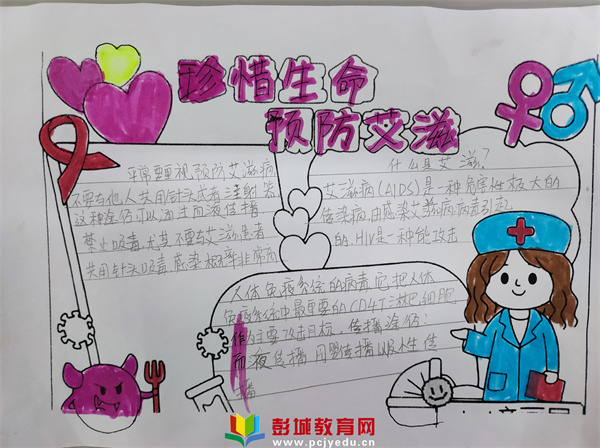 珍惜生命
预防艾滋
平常要重视预防艾滋病
不要与他人共用针头或者注射器
这种途径可以通过血液传播
禁止吸毒,尤其不要与艾滋患者
共用针头吸毒感染概率非常高
什么是艾滋?
艾滋病(AIDS)是一种危害性极大的
传染病,由感染艾滋病病毒引起
的,HIV是一种能攻击
人体免疫系统的病毒,它把人体
免疫系统中最重要的CD4T淋巴细胞
作为主要攻击目标,传播途径:
血液传播 母婴传播 性传
播
彭城教育网
www.pcjyedu.cn